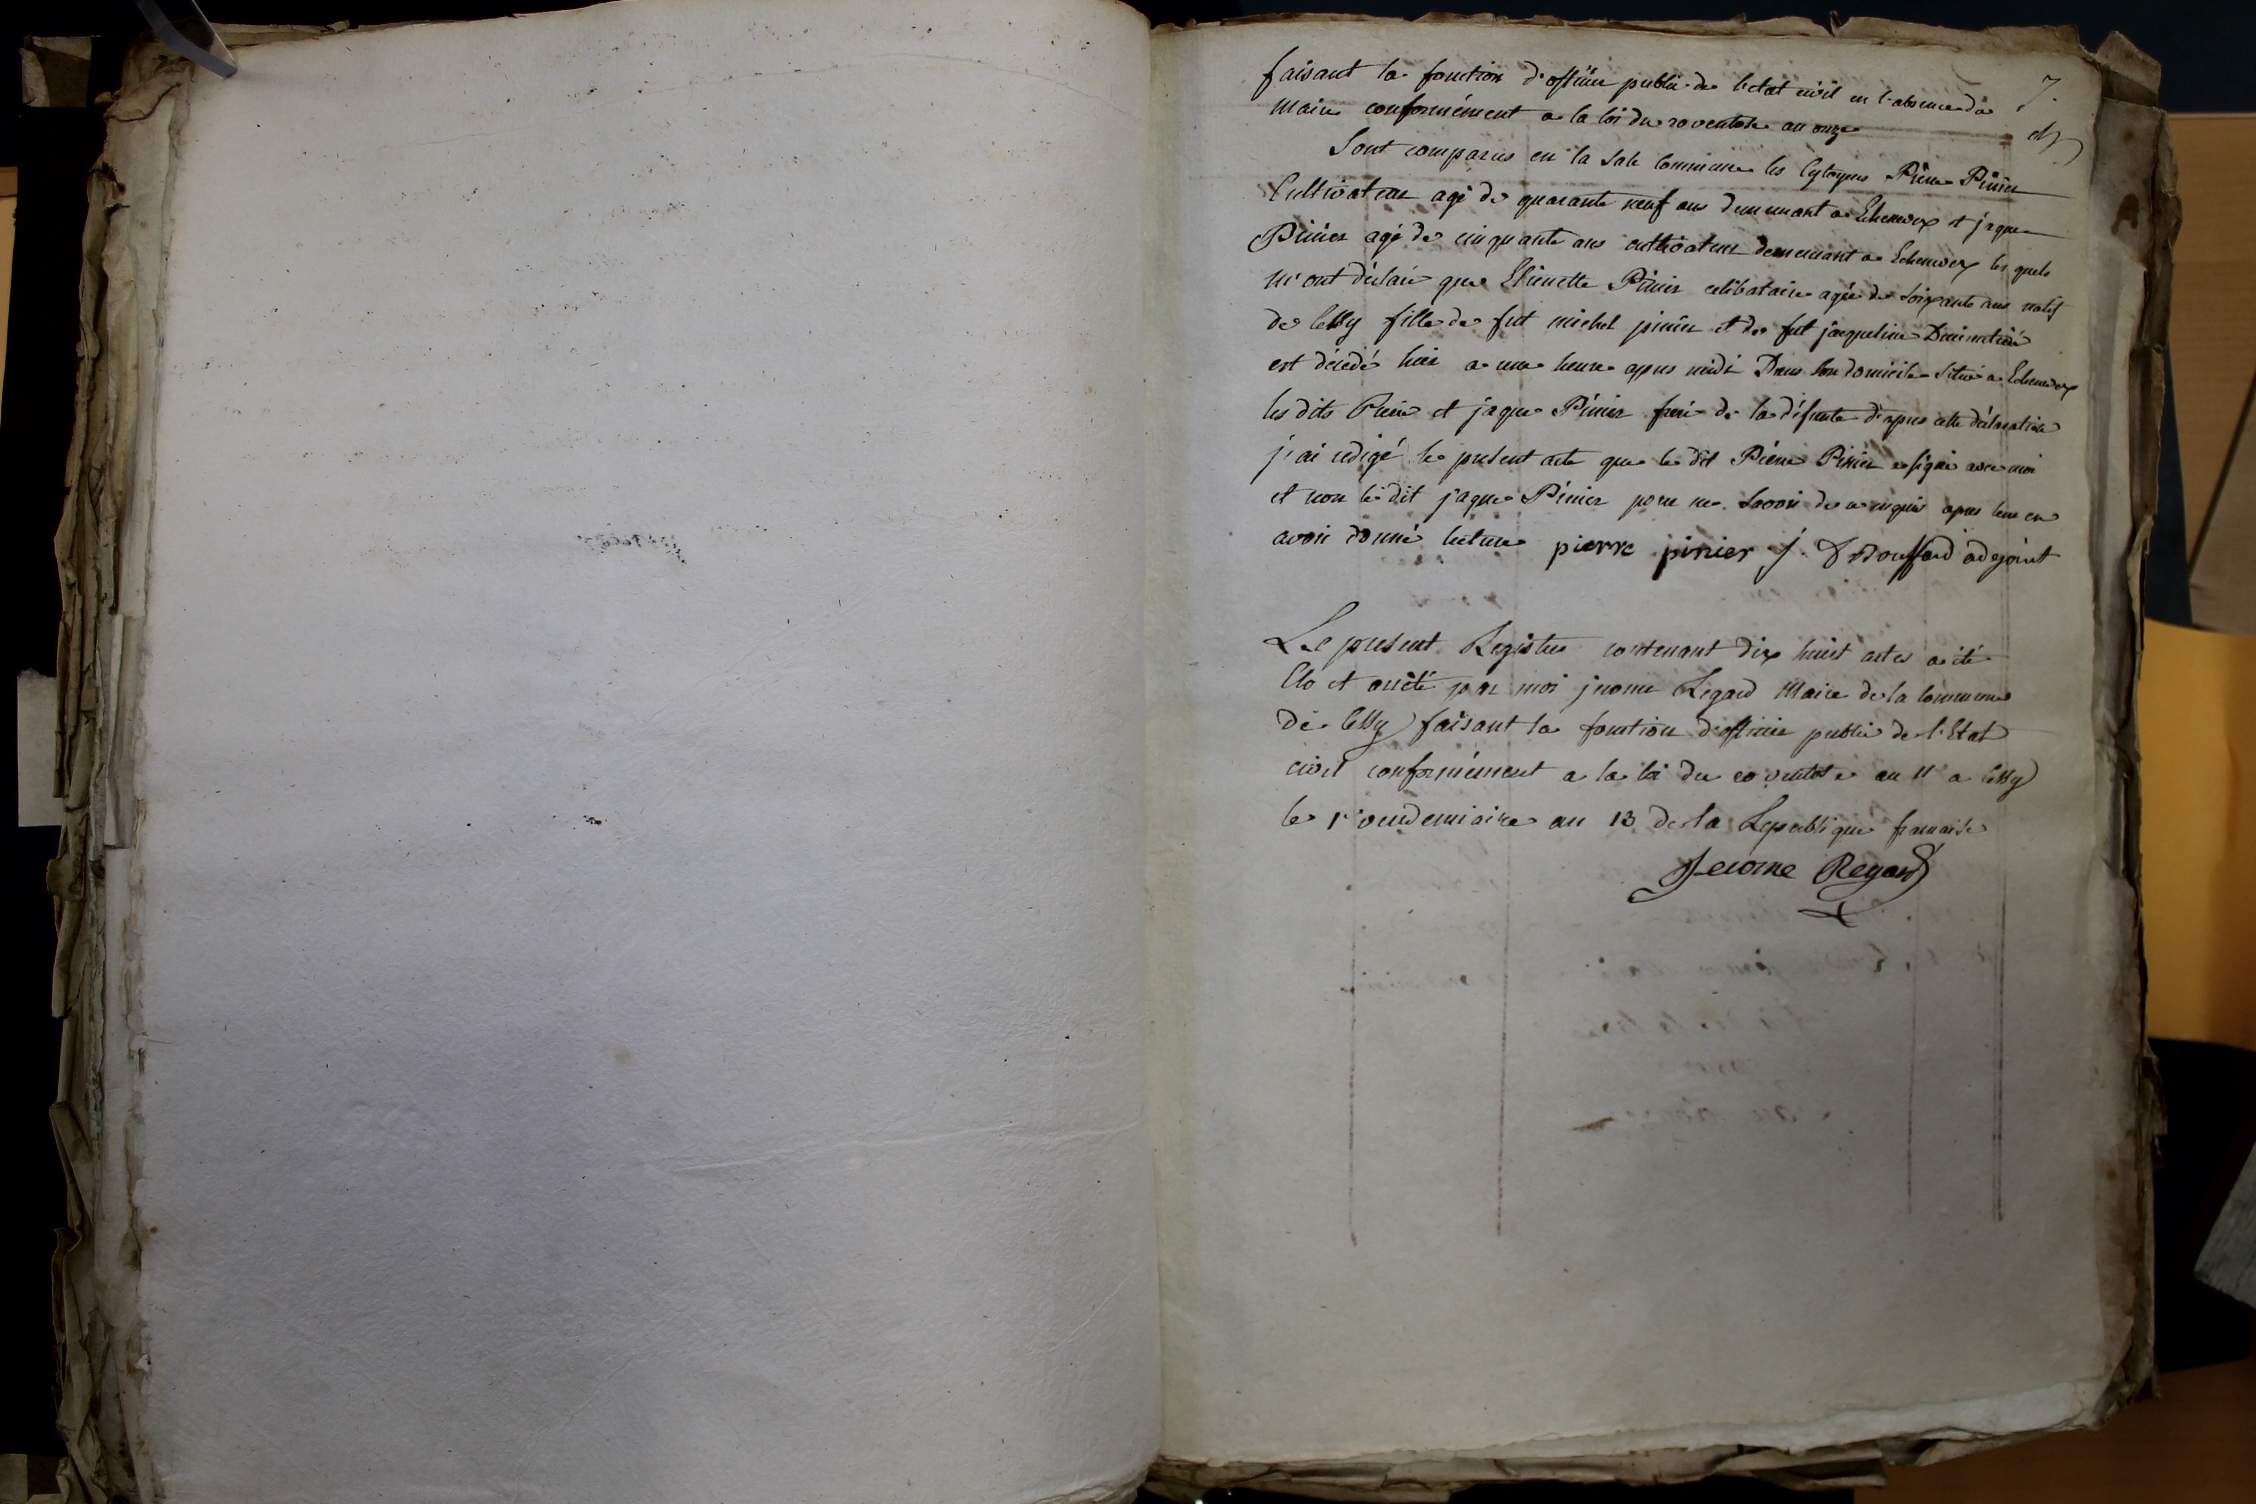 7.
faisant la fonction d'officier public de l'etat civil en l'absence du
Maire conformément a la loi du 20 ventose an onze
Sont comparus en la Sale Commune les Cytoyens Pierre Pinier
Cultivateur agé de quarante neuf ans demeurant a Echenevex et jaque
Pinier agé de cinquante ans cultivateur demeurant a Echenevex les quels
m'ont déclaré que Etienette Pinier celibataire agée de Soixante ans natif
de Cessy fille de fut michel pinier et de fut jacqueline
est décédé hier a une heure apres midi Dans Son domicile Situé a Echenevex
les dits Pierre et jaque Pinier frere de la défunte d'apres cette déclaration
j'ai redigé le present acte que le dit Piérre Pinier a signé avec moi
et non le dit jaque Pinier pour ne Savoir de ce requis apres leur en
avoir donné lecture pierre pinier J. adejoint
Le present Registre contenant dix huit actes a été
Clo et arrêté par moi jerome Regard Maire de la Commune
de Cessy faisant la fonction d'officier public de l'Etat
civil conformément a la loi du 20 ventose an 11 a Cessy
le 1er vendemiaire an 13 de la Republique francaise
Jerome Regard